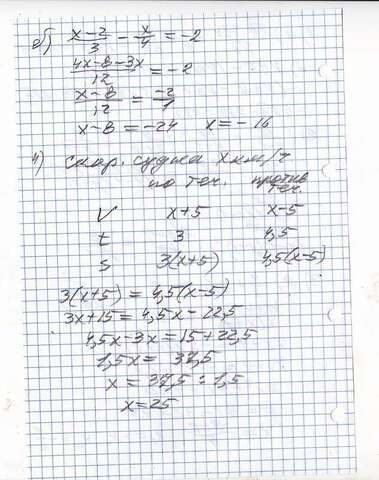 б) x-2/3 - x/4 = -2
4x-8-3x/12 = -2
x-8/12 = -2/1
x-8 = -24 x = -16
4) скор. судна x км/ч
по теч. против теч.
V x+5 x-5
t 3 4,5
S 3(x+5) 4,5(x-5)
3(x+5) = 4,5(x-5)
3x+15 = 4,5x - 22,5
4,5x-3x = 15+22,5
1,5x = 37,5
x = 37,5 : 1,5
x = 25